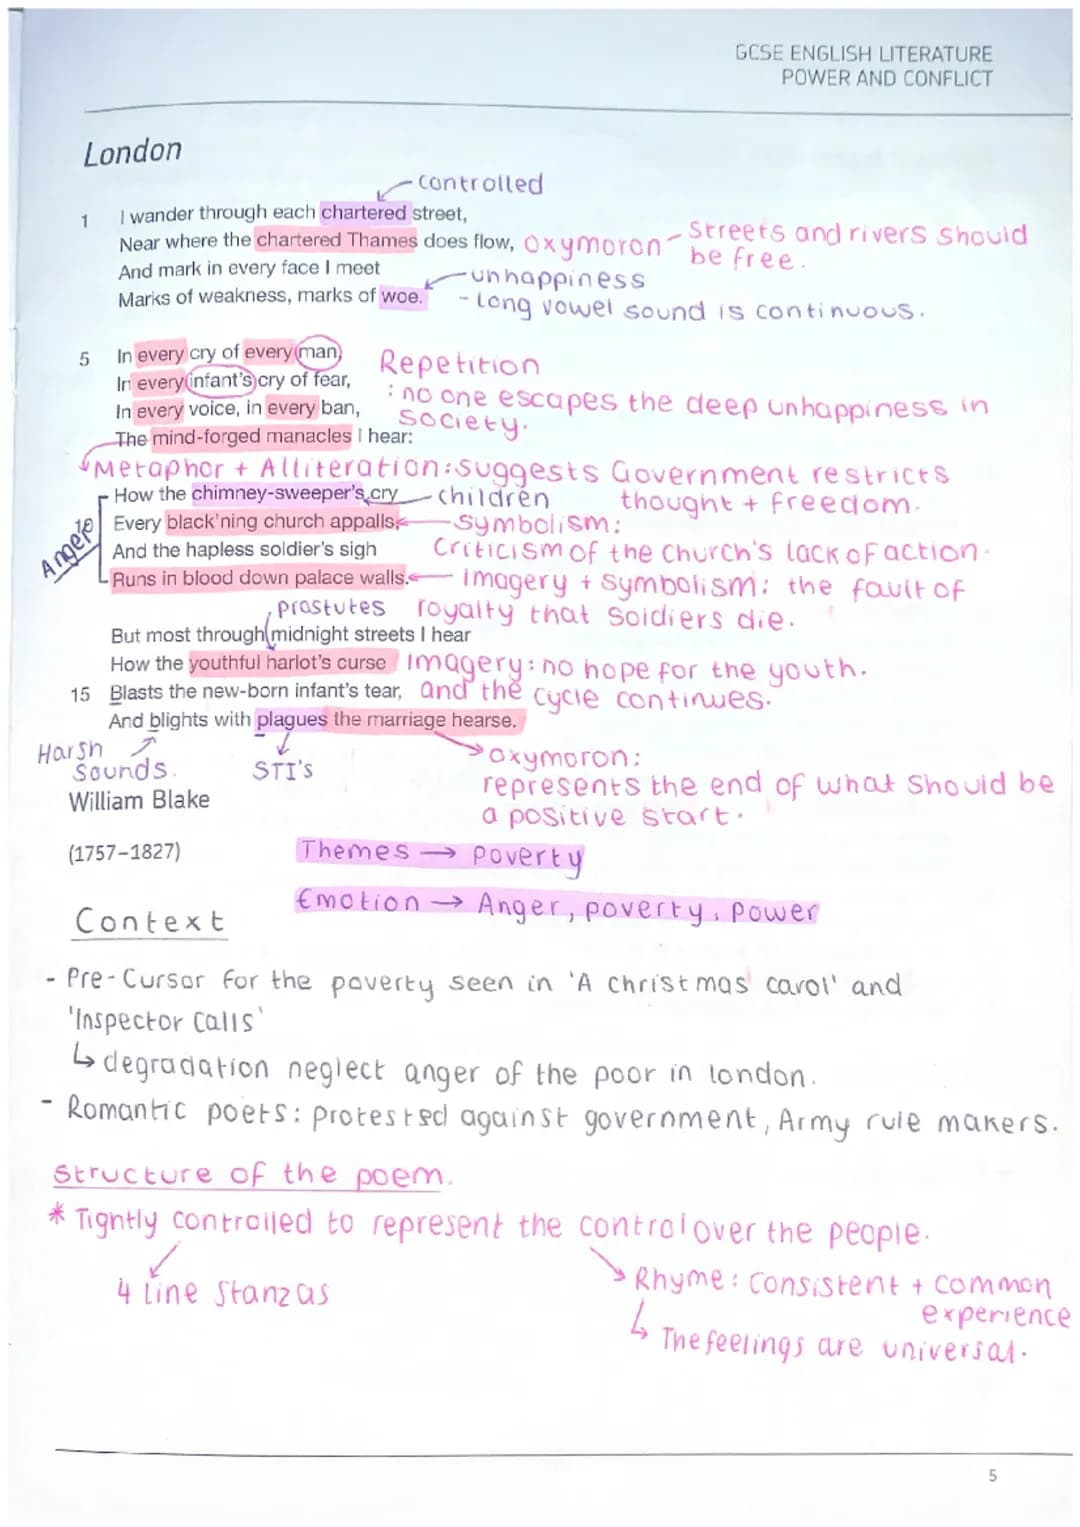 GCSE ENGLISH LITERATURE
POWER AND CONFLICT
London
controlled
1 I wander through each chartered street,
Near where the chartered Thames does flow, Oxymoron - Streets and rivers should
be free.
And mark in every face I meet
unhappiness
Marks of weakness, marks of woe. - Long vowel sound is continuous.
5 In every cry of every man, Repetition
In every infant's cry of fear, : no one escapes the deep unhappiness in
In every voice, in every ban, society.
The mind-forged manacles I hear:
Metaphor + Alliteration: suggests Government restricts
thought + freedom.
How the chimney-sweeper's cry - children
10 Every black'ning church appalls, Symbolism:
Anger
And the hapless soldier's sigh Criticism of the church's lack of action.
Runs in blood down palace walls. Imagery + symbolism: the fault of
prostutes royalty that soldiers die.
But most through midnight streets I hear
How the youthful harlot's curse Imagery: no hope for the youth.
15 Blasts the new-born infant's tear, and the cycle continues.
And blights with plagues the marriage hearse.
Harsh
Sounds.
STI's
oxymoron:
represents the end of what should be
a positive start.
William Blake
(1757–1827)
Themes → poverty
Emotion → Anger, poverty, Power
Context
- Pre-Cursor for the poverty seen in 'A christmas carol' and
'Inspector Calls'
↳ degradation neglect anger of the poor in london.
- Romantic poets: protested against government, Army rule makers.
Structure of the poem.
* Tightly controlled to represent the control over the people.
4 line stanzas
Rhyme: Consistent + common
experience
↳ The feelings are universal.
5